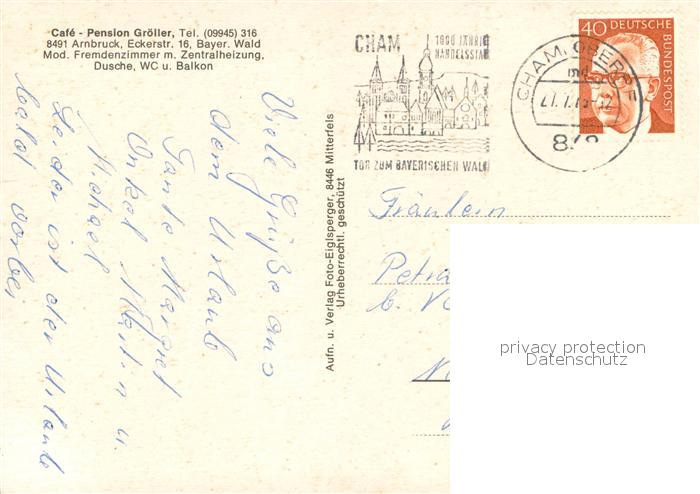 Café - Pension Gröller, Tel. (09945) 316
8491 Arnbruck, Eckerstr. 16, Bayer. Wald
Mod. Fremdenzimmer m. Zentralheizung,
Dusche, WC u. Balkon
Viele Grüße aus
dem Urlaub
Tante Margret
Onkel Martin u
Michael
Leider ist der Urlaub
bald vorbei
Aufn. u. Verlag Foto-Eiglsperger, 8446 Mitterfels
Urheberrechtl. geschützt
CHAM
1000 JÄHRIG
HANDELSSTAD
TOR ZUM BAYERISCHEN WALD
CHAM, OBERPF
md
21.7.
40 DEUTSCHE
BUNDESPOST
Fräulein
Petra
privacy protection
Datenschutz